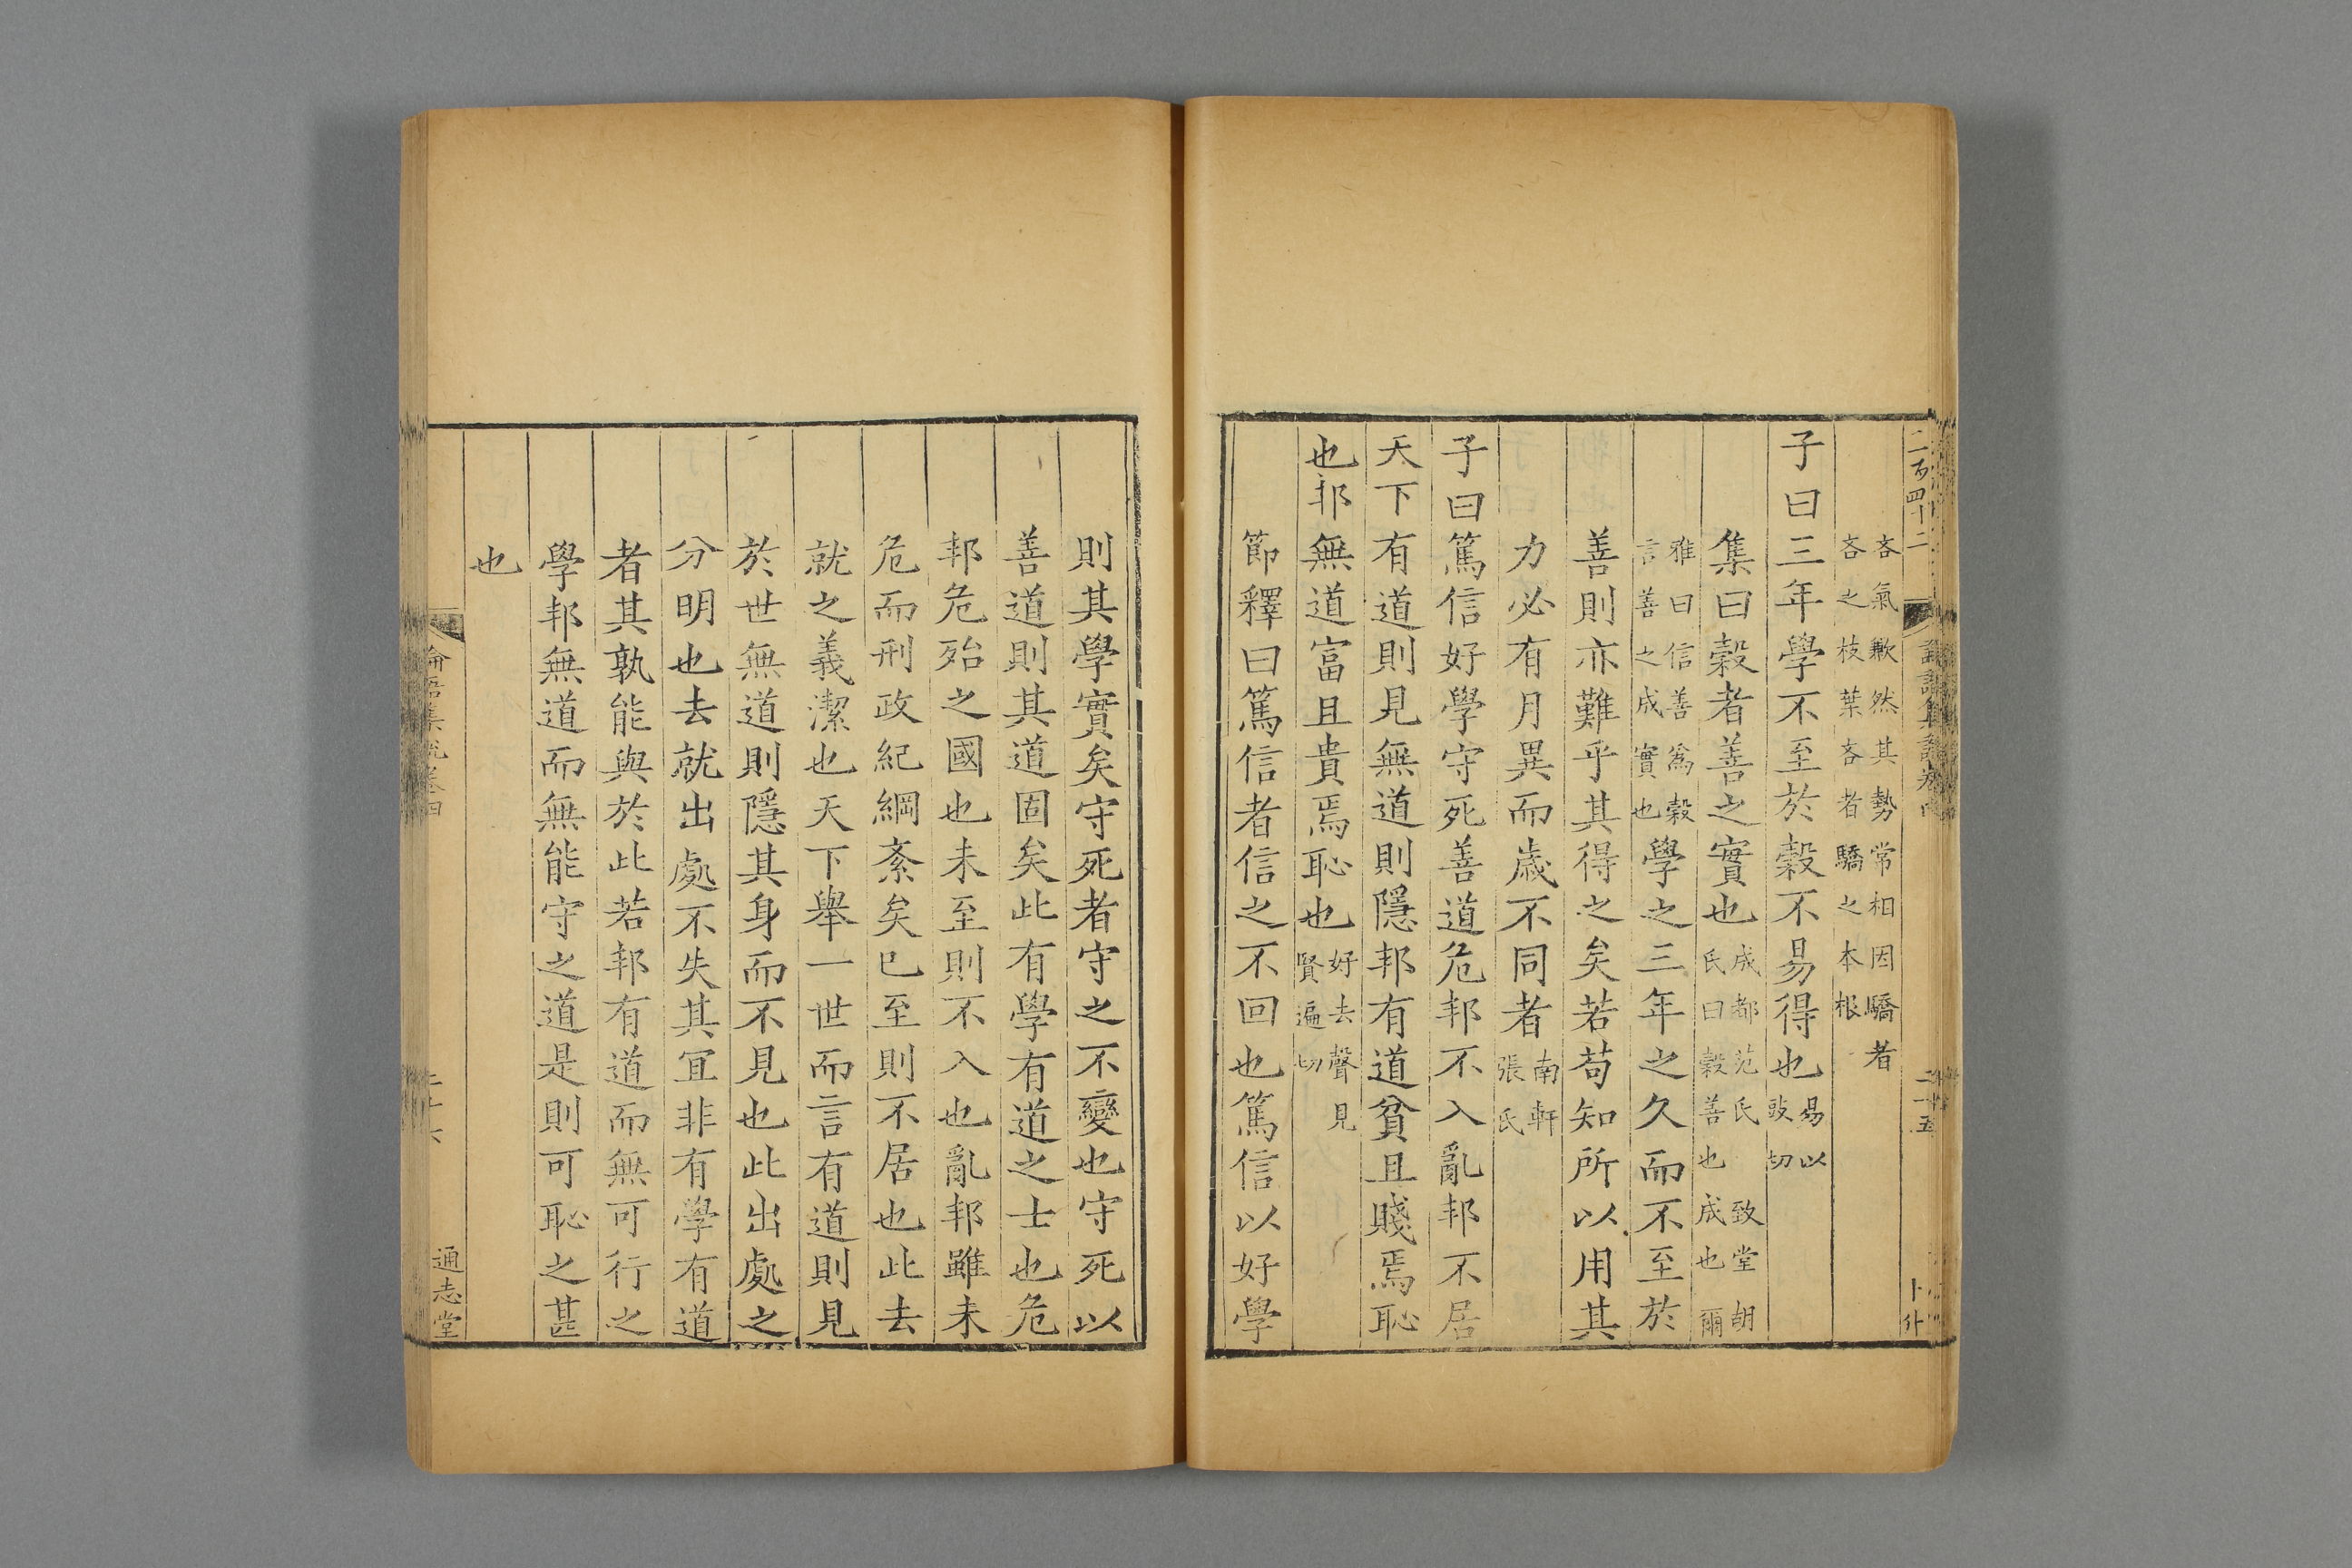 二百四十二
吝氣歉然其勢常相因驕者
吝之枝葉吝者驕之本根
子曰三年學不至於穀不易得也易以
豉切
集曰穀者善之實也成都范氏
氏曰穀善也
致堂胡
成也爾
雅曰信善爲穀
言善之成實也
學之三年之久而不至於
善則亦難乎其得之矣若苟知所以用其
力必有月異而歲不同者南軒
張氏
子曰篤信好學守死善道危邦不入亂邦不居
天下有道則見無道則隱邦有道貧且賤焉恥
也邦無道富且貴焉恥也好去聲見
賢遍切
節釋曰篤信者信之不回也篤信以好學
則其學實矣守死者守之不變也守死以
善道則其道固矣此有學有道之士也危
邦危殆之國也未至則不入也亂邦雖未
危而刑政紀綱紊矣已至則不居也此去
就之義潔也天下舉一世而言有道則見
於世無道則隱其身而不見也此出處之
分明也去就出處不失其宜非有學有道
者其孰能與於此若邦有道而無可行之
學邦無道而無能守之道是則可恥之甚
也
論語集說卷四
二十六
通志堂